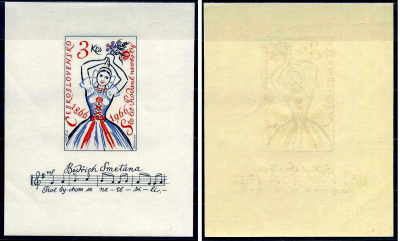 3 Kčs
ČESKOSLOVENSKO
1866
1966
Sto let Prodané nevěsty
Bedřich Smetana
Proč by-chom se ne-tě-ši-li,-